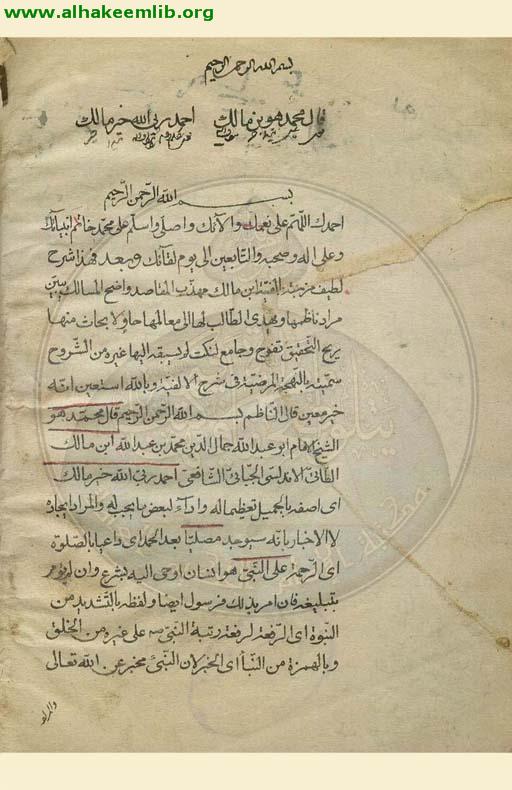 www.alhakeemlib.org
بسم الله الرحمن الرحيم
قال محمد هو بن مالك احمد ربي الله خير مالك
بسم الله الرحمن الرحيم
احمدك اللهم على نعمك والائك واصلي واسلم على محمد خاتم انبيائك
وعلى اله وصحبه والتابعين الى يوم لقائك وبعد فهذا شرح
لطيف مزجته بالفية ابن مالك مهذب المقاصد واضح المسالك يبين
مراد ناظمها ويهدي الطالب لها الى معالمها حاو لابحاث منها
ريح التحقيق تفوح وجامع لنكت لم يسبقه اليها غيره من الشروح
سميته بالبهجة المرضية في شرح الالفية وبالله استعين انه
خير معين قال الناظم بسم الله الرحمن الرحيم قال محمد هو
الشيخ الامام ابو عبد الله جمال الدين محمد بن عبد الله ابن مالك
الطائي الاندلسي الجياني الشافعي احمد ربي الله خير مالك
اى اصفه بالجميل تعظيما له واداء لبعض ما يجب له والمراد ايجاده
لا الاخبار بانه سيوجد مصليا بعد الحمد اى داعيا بالصلوة
اى الرحمة على النبي هو انسان اوحى اليه بشرع وان لم يؤمر
بتبليغه فان امر بذلك فرسول ايضا ولفظه بالتشديد من
النبوة اى الرفعة لرفعة رتبة النبي على غيره من الخلق
وبالهمزة من النبأ اى الخبر لان النبي مخبر عن الله تعالى
والمراد